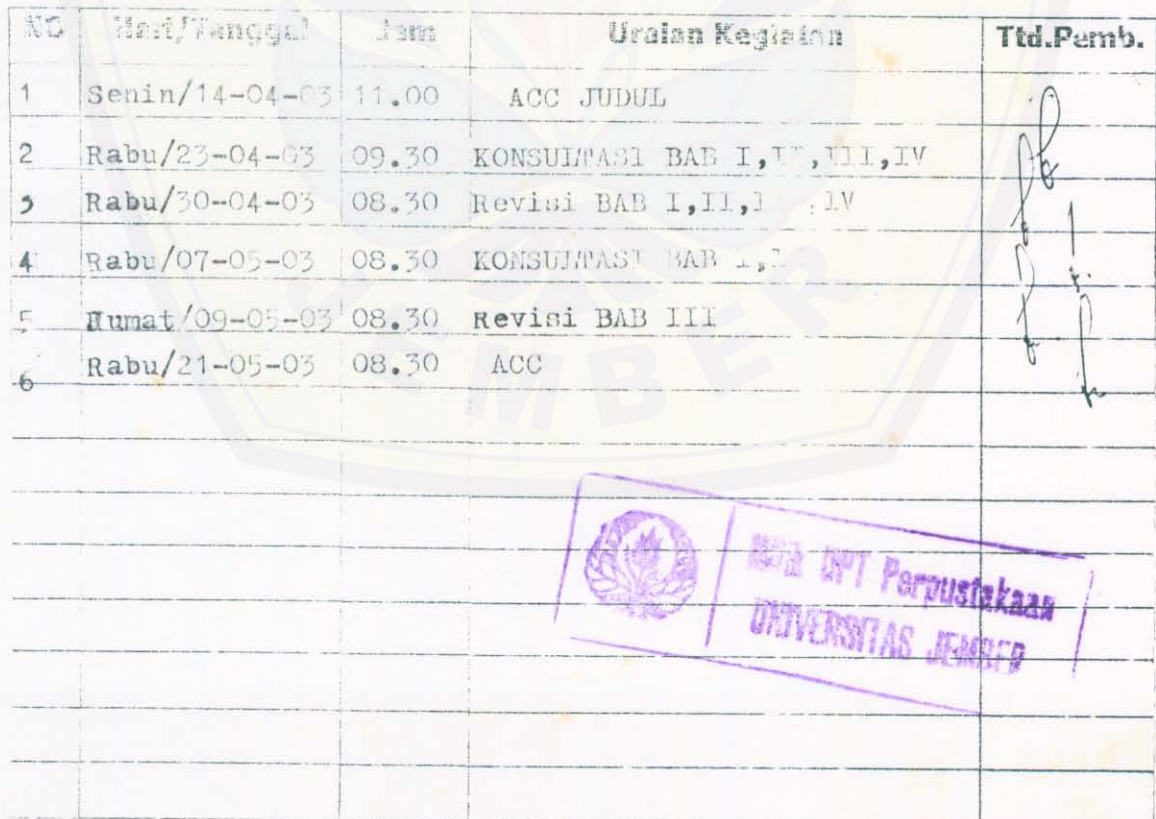 NO Hari/Tanggal Jam Uraian Kegiatan Ttd.Pemb.
1 Senin/14-04-03 11.00 ACC JUDUL
2 Rabu/23-04-03 09.30 KONSULTASI BAB I,II,III,IV
3 Rabu/30-04-03 08.30 Revisi BAB I,II, IV
4 Rabu/07-05-03 08.30 KONSULTASI BAB I,
5 Jumat/09-05-03 08.30 Revisi BAB III
6 Rabu/21-05-03 08.30 ACC
UPT Perpustakaan
UNIVERSITAS JEMBER
JEMBER